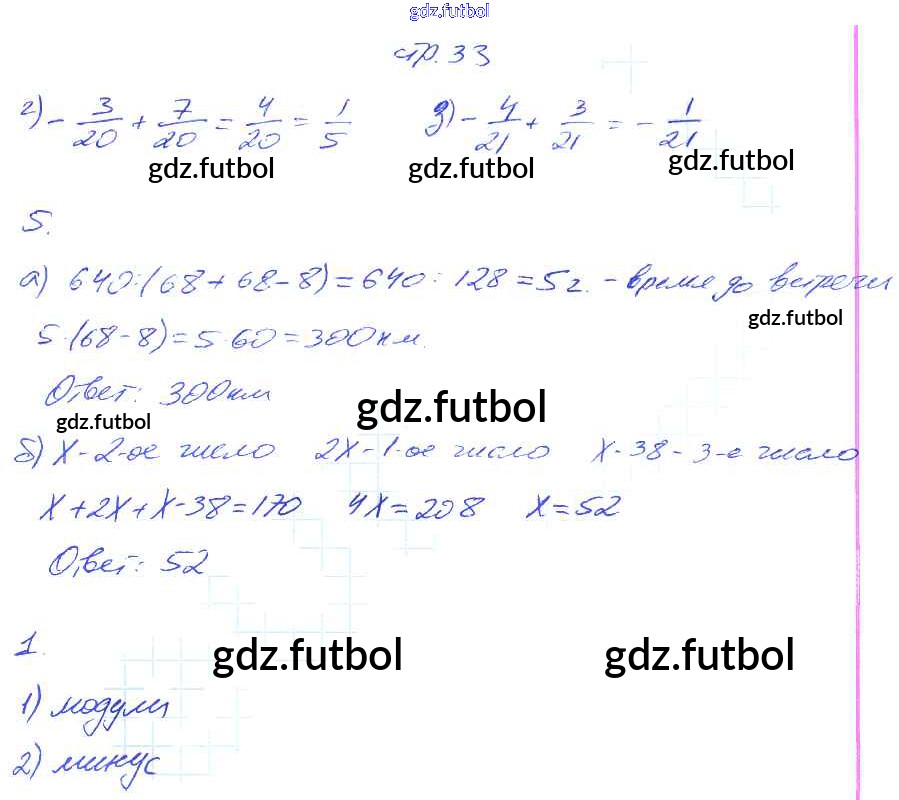 gdz.futbol
стр. 33
г) - 3/20 + 7/20 = 4/20 = 1/5 д) - 4/21 + 3/21 = - 1/21
gdz.futbol gdz.futbol gdz.futbol
5.
а) 640:(68+68-8)=640:128=5г. - время до встречи
gdz.futbol
5·(68-8)=5·60=300км.
Ответ: 300км
gdz.futbol gdz.futbol
б) X-2-ое число 2X-1-ое число X-38-3-е число
X+2X+X-38=170 4X=208 X=52
Ответ: 52
1.
gdz.futbol gdz.futbol
1) модули
2) минус